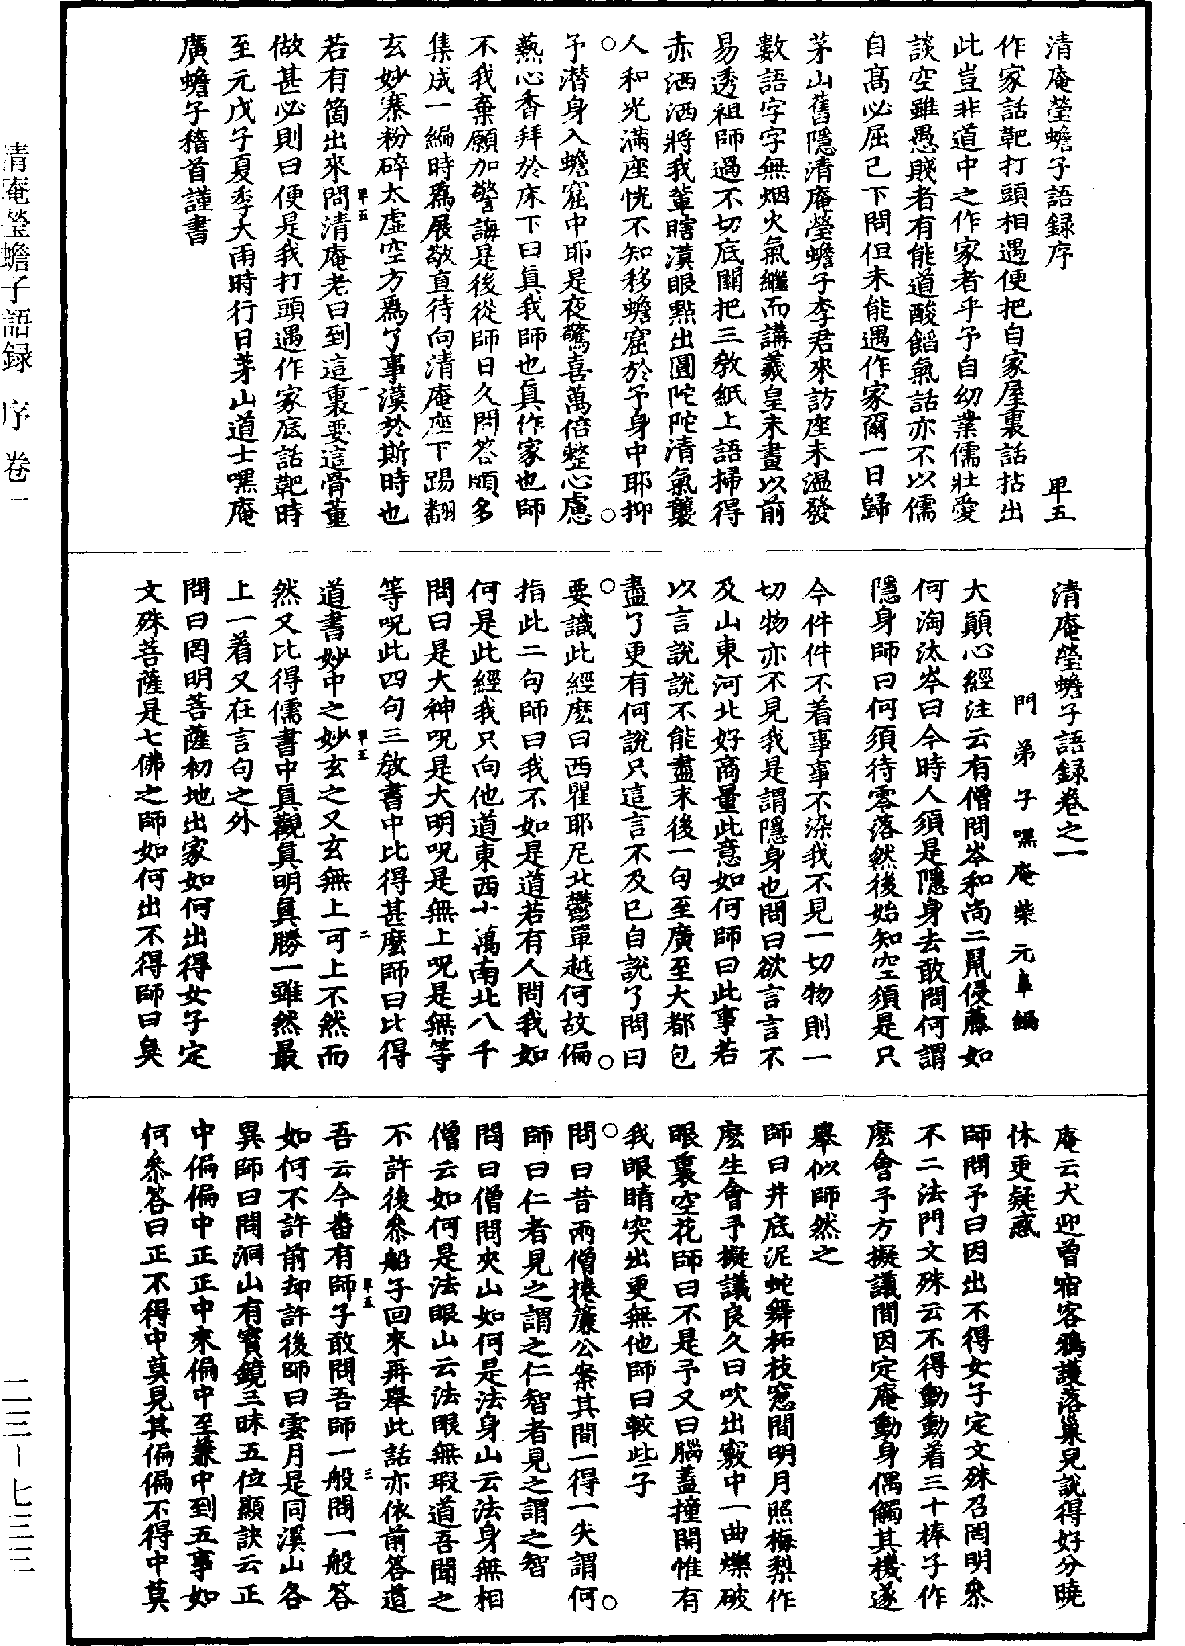 清庵瑩蟾子語録序　　　甲五
作家話靶打頭相遇便把自家屋裏話拈出
此豈非道中之作家者乎予自幼業儒壯愛
談空雖愚賤者有能道酸餡氣話亦不以儒
自高必屈己下問但未能遇作家爾一日歸
茅山舊隱清庵瑩蟾子李君來訪座未溫發
數語字字無烟火氣繼而講羲皇未畫以前
易透祖師過不切底關把三教紙上語掃得
赤洒洒將我輩瞎漢眼點出圓陀陀清氣襲
人和光滿座恍不知移蟾窟於予身中耶抑
予潛身入蟾窟中耶是夜驚喜萬倍整心慮
爇心香拜於床下曰真我師也真作家也師
不我棄願加警誨是後從師日久問答頗多
集成一編時爲展敬直待向清庵座下踢翻
玄妙寨粉碎太虛空方爲了事漢於斯時也
若有箇出來問清庵老曰到這裏要這骨董
做甚必則曰便是我打頭遇作家底話靶時
至元戊子夏季大雨時行日茅山道士嘿庵
廣蟾子稽首謹書
清庵瑩蟾子語録卷之一
門弟子嘿庵柴元皐編
大顛心經注云有僧問岑和尚二鼠侵藤如
何淘汰岑曰今時人須是隱身去敢問何謂
隱身師曰何須待零落然後始知空須是只
今件件不着事事不染我不見一切物則一
切物亦不見我是謂隱身也問曰欲言言不
及山東河北好商量此意如何師曰此事若
以言說說不能盡末後一句至廣至大都包
盡了更有何說只這言不及已自說了問曰
要識此經麽曰西瞿耶尼北鬱單越何故偏
指此二句師曰我不如是道若有人問我如
何是此經我只向他道東西小萬南北八千
問曰是大神呪是大明呪是無上呪是無等
等呪此四句三教書中比得甚麽師曰比得
道書妙中之妙玄之又玄無上可上不然而
然又比得儒書中真觀真明真勝一雖然最
上一着又在言句之外
問曰罔明菩薩初地出家如何出得女子定
文殊菩薩是七佛之師如何出不得師曰㚖
庵云犬迎曾宿客鴉護落巢兒說得好分曉
休更疑惑
師問予曰因出不得女子定文殊召罔明叅
不二法門文殊云不得動動着三十棒子作
麽會予方擬議間因定庵動身偶觸其機遂
舉似師然之
師曰井底泥蛇舞柘枝窓間明月照梅梨作
麽生會予擬議良久曰吹出竅中一曲爍破
眼裏空花師曰不是予又曰腦蓋撞開惟有
我眼睛突出更無他師曰較些子
問曰昔兩僧捲簾公案其間一得一失謂何
師曰仁者見之謂之仁智者見之謂之智
問曰僧問夾山如何是法身山云法身無相
僧云如何是法眼山云法眼無瑕道吾聞之
不許後叅船子回來再舉此話亦依前答道
吾云今番有師子敢問吾師一般問一般答
如何不許前却許後師曰雲月是同溪山各
異師曰問洞山有寶鏡三昧五位顯訣云正
中偏偏中正正中來偏中至兼中到五事如
何叅答曰正不得中莫見其偏偏不得中莫
清庵瑩蟾子語録　序　卷一
二三－七三三